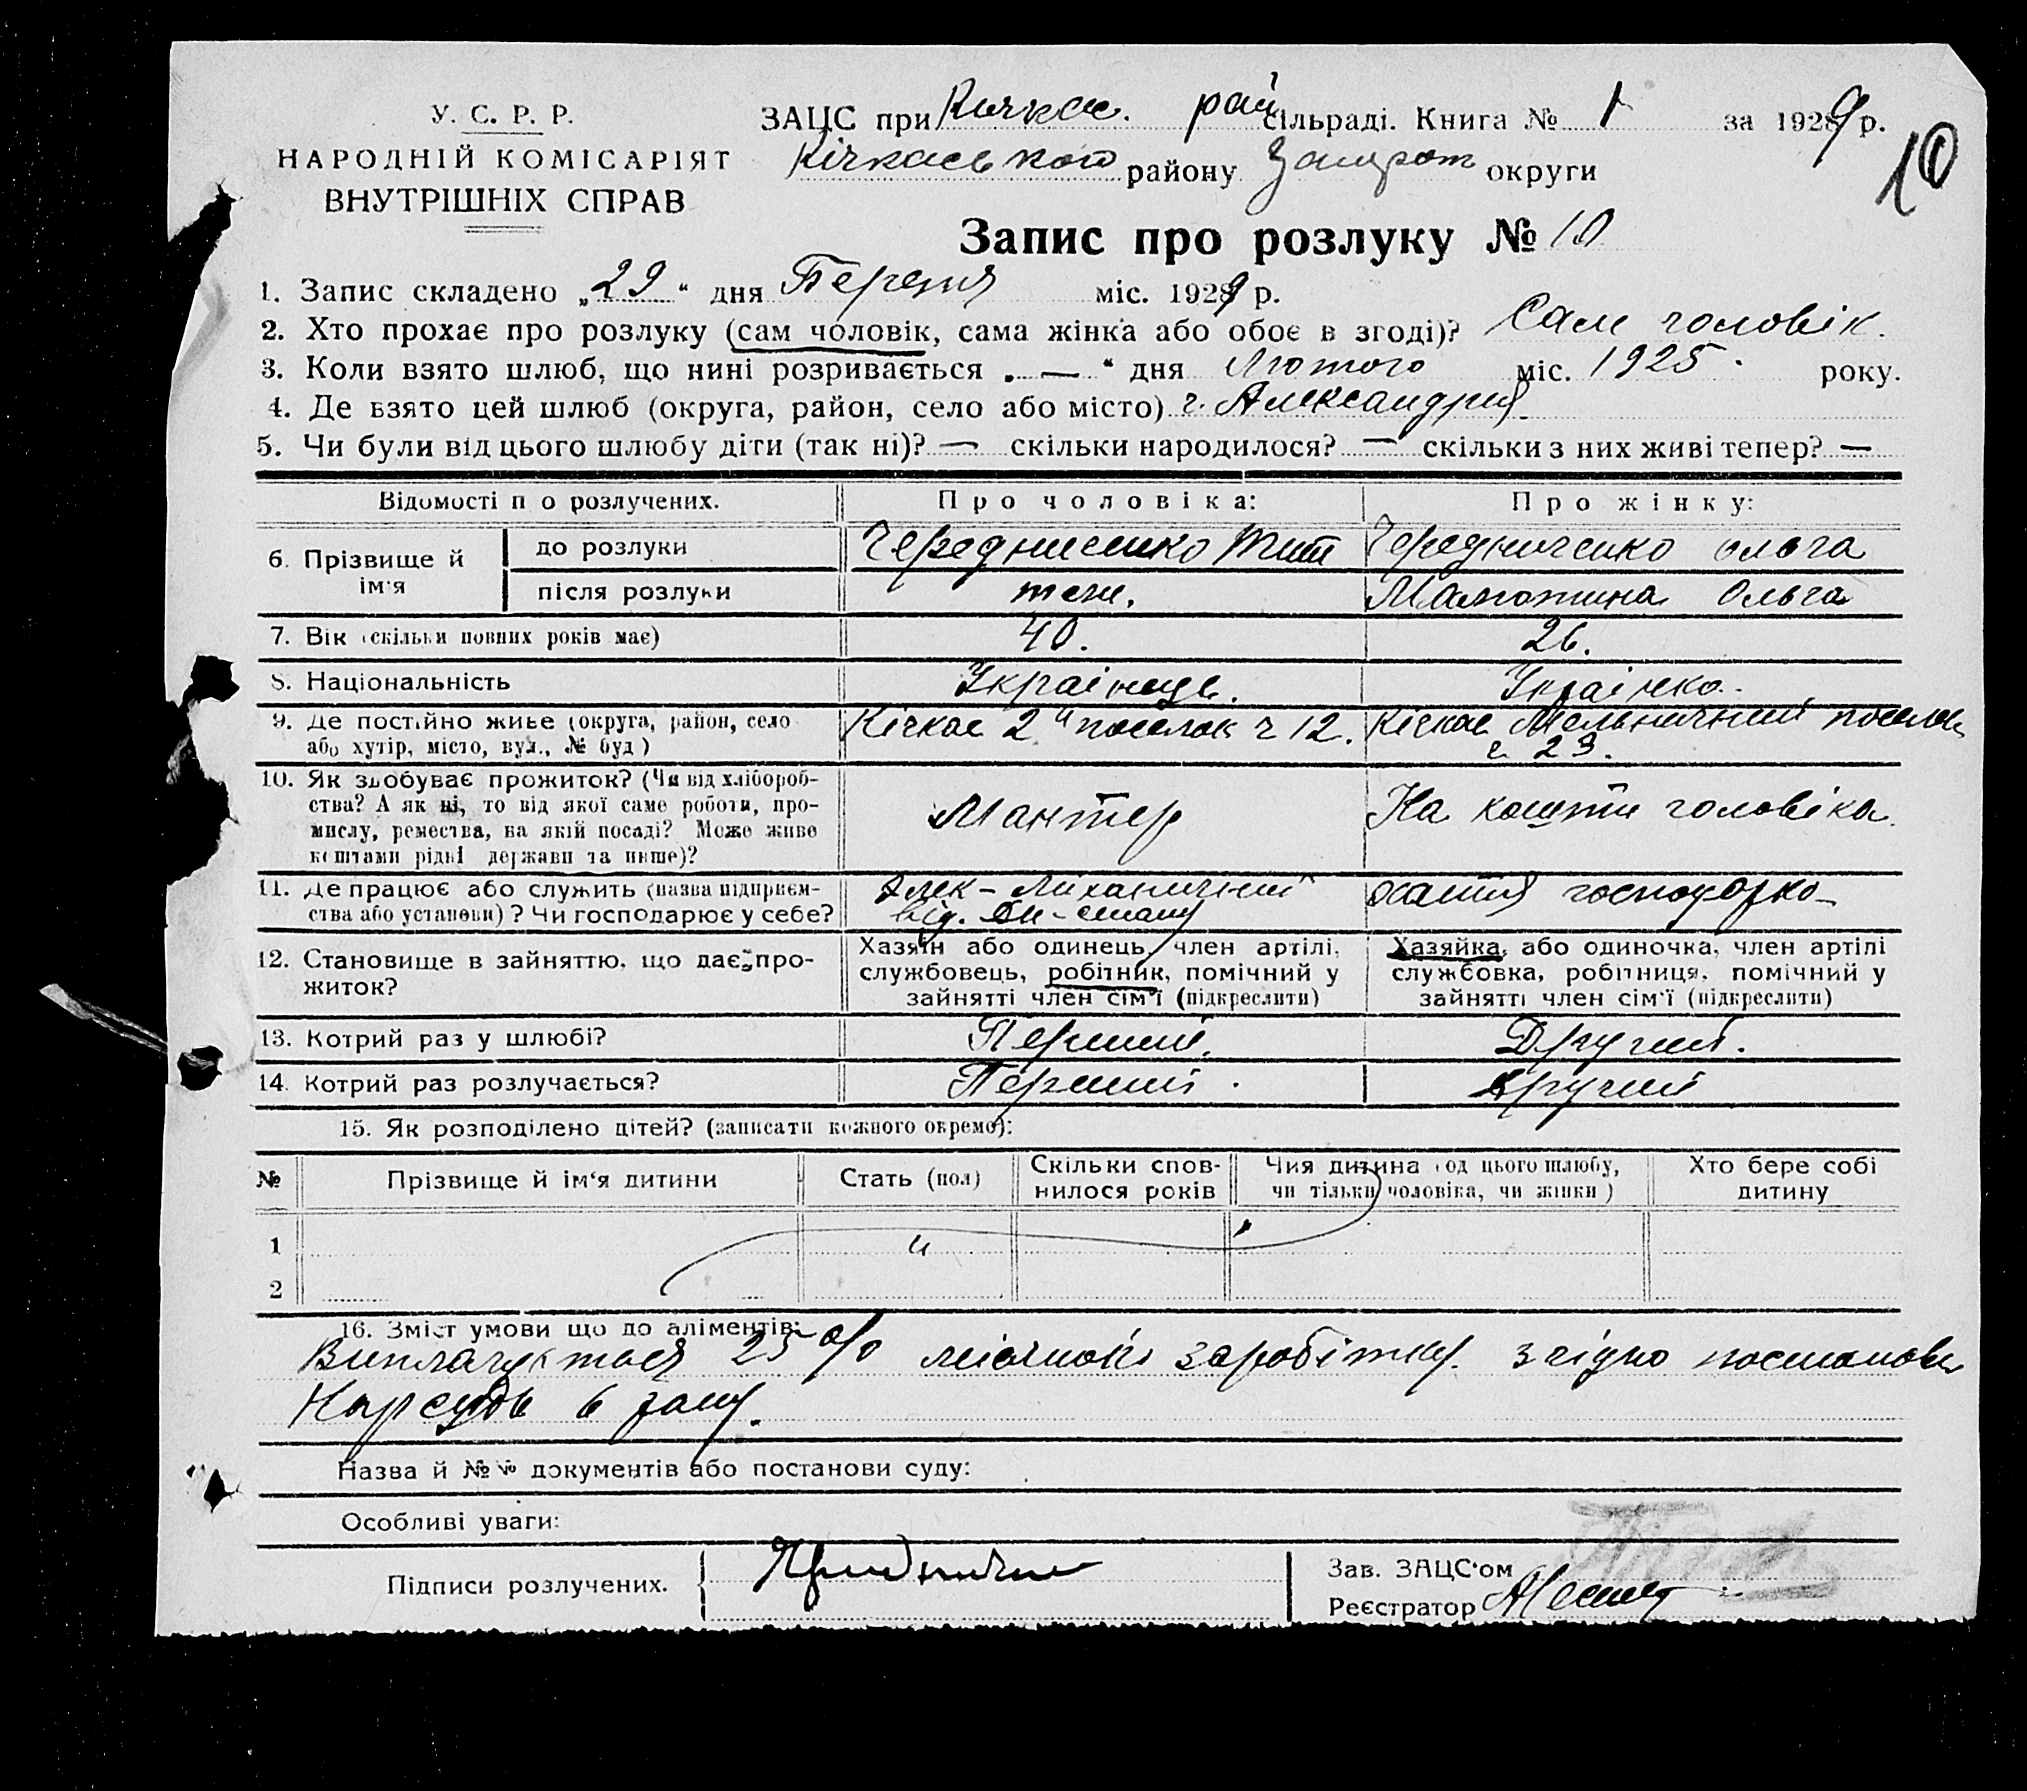 У. С. Р. Р.
НАРОДНІЙ КОМІСАРІЯТ
ВНУТРІШНІХ СПРАВ
ЗАЦС при Кичкас. рай сільраді. Книга № 1 за 1929 р.
Кічкаського району Запорож округи
10
Запис про розлуку № 10
1. Запис складено „29“ дня Березня міс. 1929 р.
2. Хто прохає про розлуку (сам чоловік, сама жінка або обоє в згоді)? Сам чоловік.
3. Коли взято шлюб, що нині розривається „—“ дня Лютого міс. 1925 року.
4. Де взято цей шлюб (округа, район, село або місто) г. Александрия
5. Чи були від цього шлюбу діти (так ні)? — скільки народилося? — скільки з них живі тепер? —
Відомості п о розлучених. Про чоловіка: Про жінку:
6. Прізвище й ім'я до розлуки Чередниченко Тит Чередниченко Ольга
після розлуки теж. Ольга
7. Вік (скільки повних років має) 40. 26.
8. Національність Українець. Українка.
9. Де постійно живе (округа, район, село або хутір, місто, вул., № буд) Кічкас 2й поселок ч 12. Кічкас Мельничний поселок ч. 23.
10. Як здобуває прожиток? (Чи від хліборобства? А як ні, то від якої саме роботи, промислу, ремества, на якій посаді? Може живе коштами рідні держави та инше)? Мантер На кошти чоловіка.
11. Де працює або служить (назва підприємства або установи)? Чи господарює у себе? від. хатня господарка
12. Становище в зайняттю, що дає прожиток? Хазяїн або одинець, член артілі, службовець, робітник, помічний у зайнятті член сім'ї (підкреслити) Хазяйка, або одиночка, член артілі службовка, робітниця, помічний у зайнятті член сім'ї (підкреслити)
13. Котрий раз у шлюбі? Перший. Другий.
14. Котрий раз розлучається? Перший. другий
15. Як розподілено дітей? (записати кожного окремо):
№ Прізвище й ім'я дитини Стать (пол) Скільки сповнилося років Чия дитина (од цього шлюбу, чи тільки чоловіка, чи жінки) Хто бере собі дитину
1
2
16. Зміст умови що до аліментів:
Виплачується 25 % заробітку. згідно постанови
Нарсуда 6
Назва й №№ документів або постанови суду:
Особливі уваги:
Підписи розлучених.
Зав. ЗАЦС'ом
Реєстратор